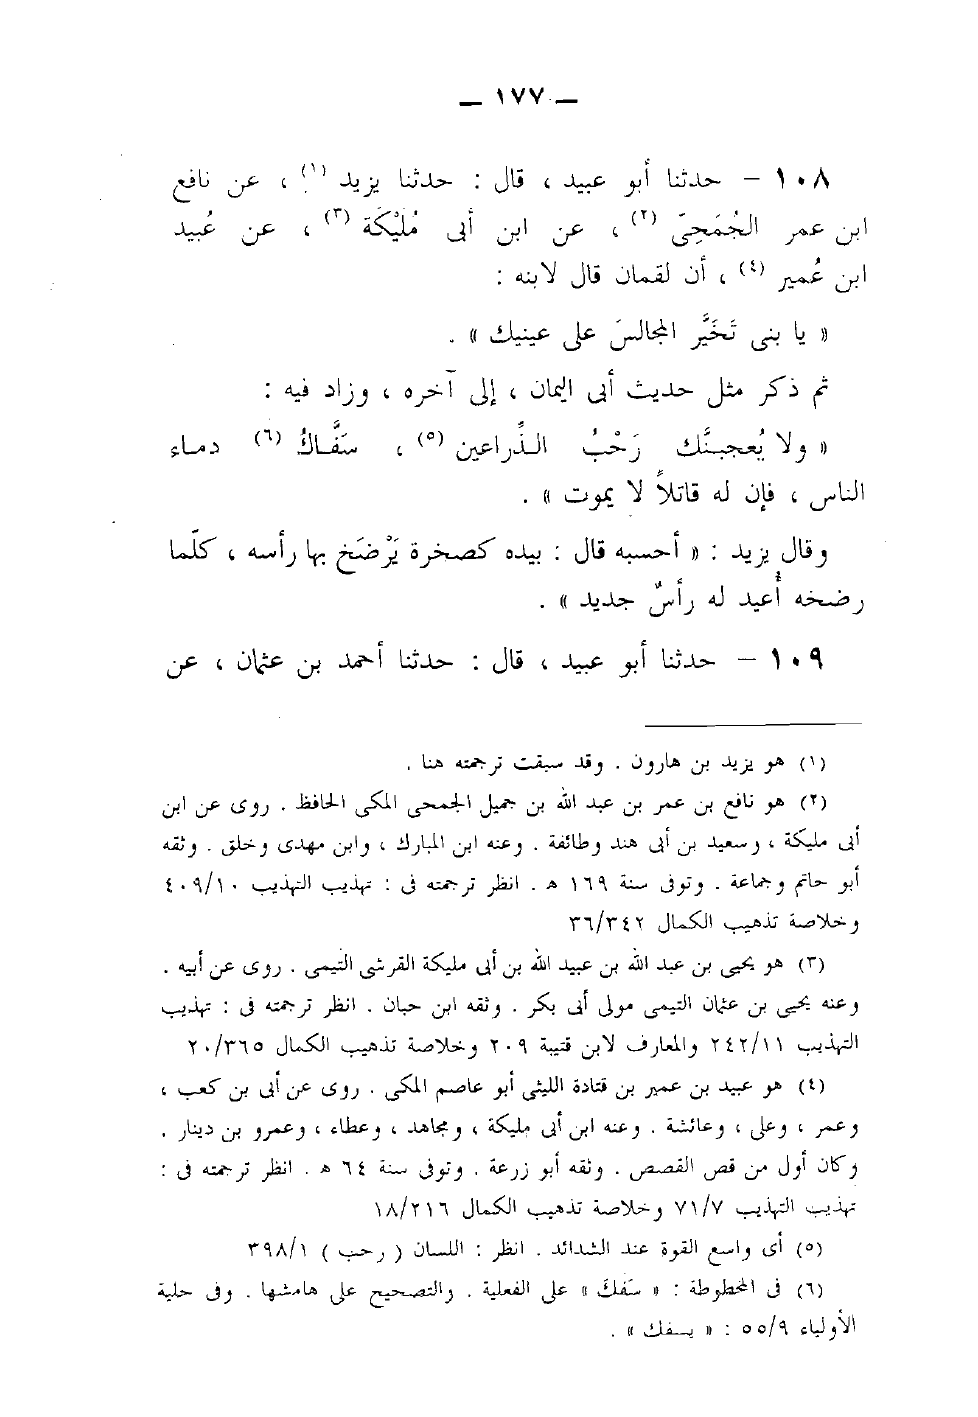 — ١٧٧ —
١٠٨ – حدثنا أبو عبيد ، قال : حدثنا يزيد (١) ، عن نافع
ابن عمر الجُمَحِىّ (٢) ، عن ابن أبى مُلَيْكَة (٣) ، عن عُبيد
ابن عُمير (٤) ، أن لقمان قال لابنه :
« يا بنى تَخَيَّر المجالسَ على عينيك » .
ثم ذكر مثل حديث أبى اليمان ، إلى آخره ، وزاد فيه :
« ولا يُعجبنَّك رَحْبُ الذِّراعين (٥) ، سَفَّاكُ (٦) دماء
الناس ، فإن له قاتلاً لا يموت » .
وقال يزيد : « أحسبه قال : بيده كصخرة يَرْضَخ بها رأسه ، كلّما
رضخه أُعيد له رأسٌ جديد » .
١٠٩ – حدثنا أبو عبيد ، قال : حدثنا أحمد بن عثمان ، عن
(١) هو يزيد بن هارون . وقد سبقت ترجمته هنا .
(٢) هو نافع بن عمر بن عبد الله بن جميل الجمحى المكى الحافظ . روى عن ابن
أبى مليكة ، وسعيد بن أبى هند وطائفة . وعنه ابن المبارك ، وابن مهدى وخلق . وثقه
أبو حاتم وجماعة . وتوفى سنة ١٦٩ هـ . انظر ترجمته فى : تهذيب التهذيب ٤٠٩/١٠
وخلاصة تذهيب الكمال ٣٦/٣٤٢
(٣) هو يحيى بن عبد الله بن عبيد الله بن أبى مليكة القرشى التيمى . روى عن أبيه .
وعنه يحيى بن عثمان التيمى مولى أبى بكر . وثقه ابن حبان . انظر ترجمته فى : تهذيب
التهذيب ٢٤٢/١١ والمعارف لابن قتيبة ٢٠٩ وخلاصة تذهيب الكمال ٢٠/٣٦٥
(٤) هو عبيد بن عمير بن قتادة الليثى أبو عاصم المكى . روى عن أبى بن كعب ،
وعمر ، وعلى ، وعائشة . وعنه ابن أبى مليكة ، ومجاهد ، وعطاء ، وعمرو بن دينار .
وكان أول من قص القصص . وثقه أبو زرعة . وتوفى سنة ٦٤ هـ . انظر ترجمته فى :
تهذيب التهذيب ٧١/٧ وخلاصة تذهيب الكمال ١٨/٢١٦
(٥) أى واسع القوة عند الشدائد . انظر : اللسان ( رحب ) ٣٩٨/١
(٦) فى المخطوطة : « سَفَكَ » على الفعلية . والتصحيح على هامشها . وفى حلية
الأولياء ٥٥/٩ : « يسفك » .